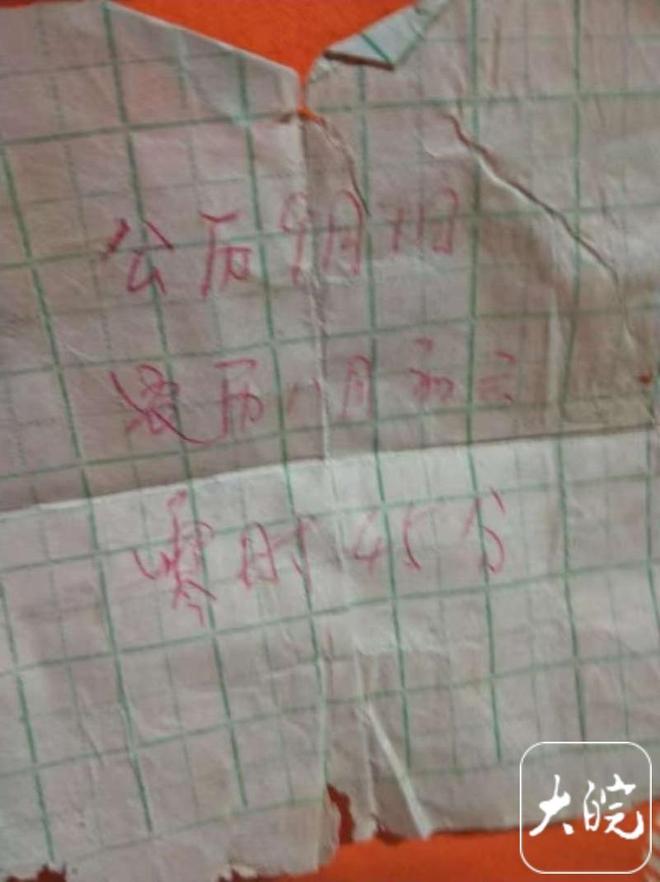 公历9月十1日
农历八月初三
零时45分
大皖